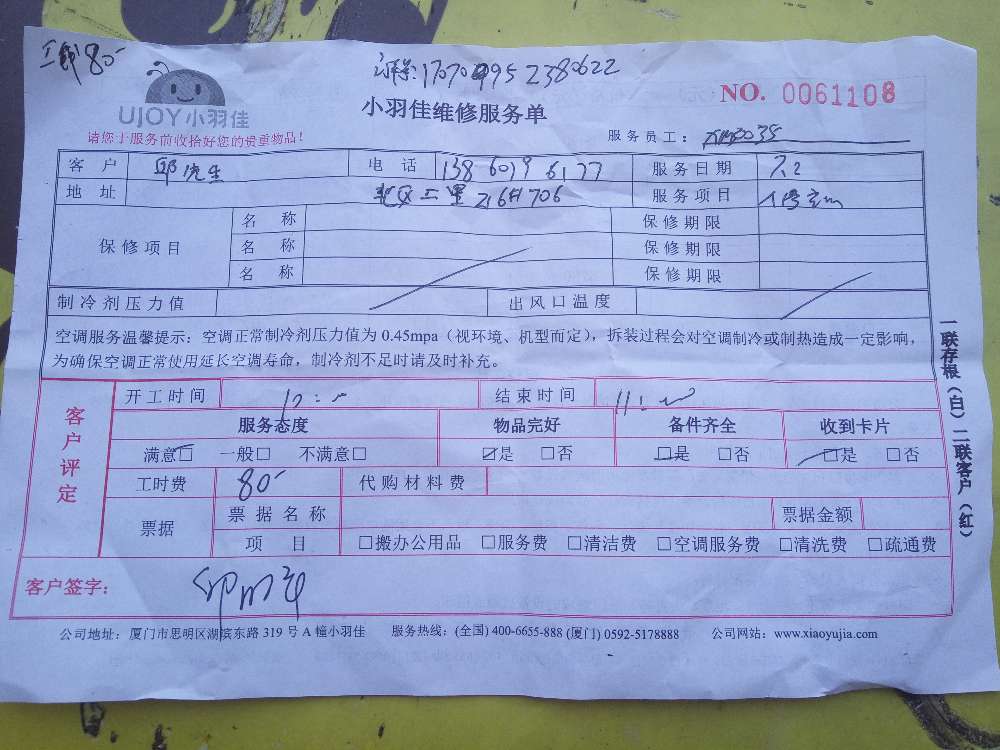 80-
170709952380622
UJOY小羽佳
小羽佳维修服务单
NO. 0061108
请您于服务前收拾好您的贵重物品！
服务员工：
客户 邱先生 电话 13860196177 服务日期
地址 二里216#706 服务项目
保修项目 名称 保修期限
名称 保修期限
名称 保修期限
制冷剂压力值 出风口温度
空调服务温馨提示：空调正常制冷剂压力值为 0.45mpa（视环境、机型而定），拆装过程会对空调制冷或制热造成一定影响，
为确保空调正常使用延长空调寿命，制冷剂不足时请及时补充。
客户评定
开工时间 结束时间
服务态度 物品完好 备件齐全 收到卡片
满意□ 一般□ 不满意□ □是 □否 □是 □否 □是 □否
工时费 80- 代购材料费
票据 票据名称 票据金额
项目 □搬办公用品 □服务费 □清洁费 □空调服务费 □清洗费 □疏通费
客户签字：
一联存根（白）二联客户（红）
公司地址：厦门市思明区湖滨东路 319 号 A 幢小羽佳 服务热线：(全国) 400-6655-888 (厦门) 0592-5178888 公司网站：www.xiaoyujia.com